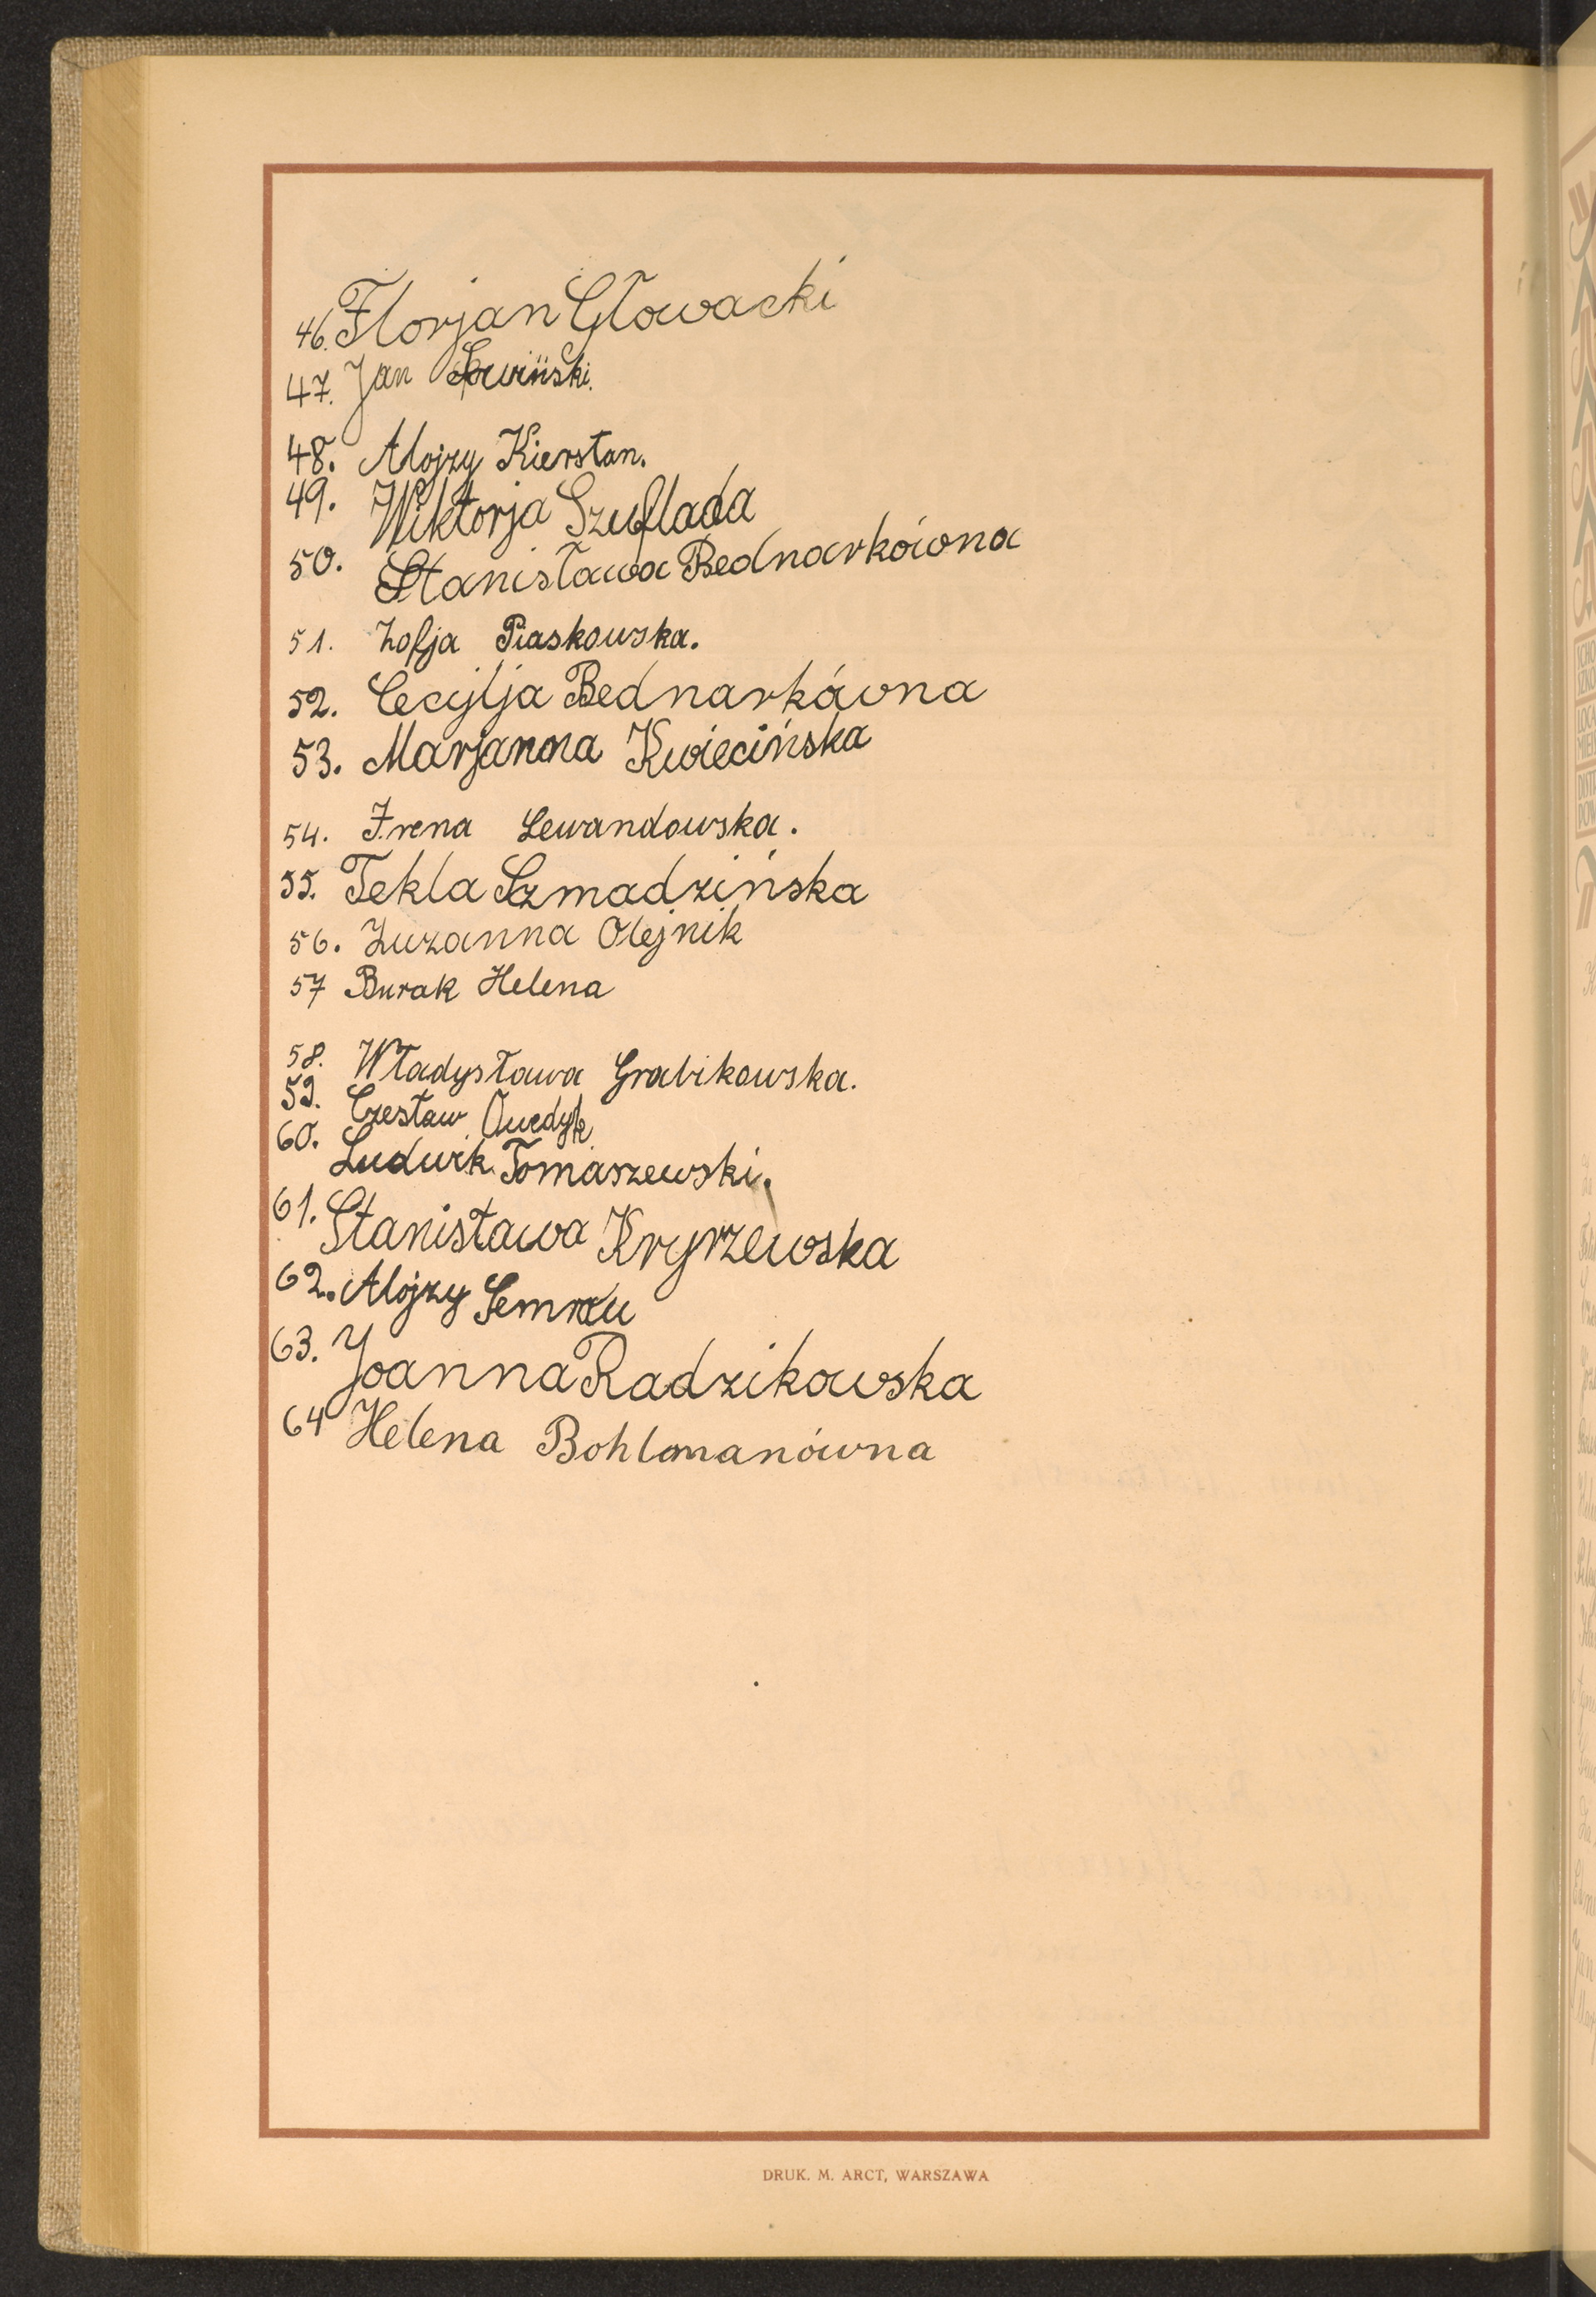 46. Florjan Głowacki
47. Jan
48. Alojzy Kierstan.
49. Wiktorja Szuflada
50. Stanisława Bednarkówna
51. Zofja Piaskowska.
52. Cecylja Bednarkówna
53. Marjanna Kwiecińska
54. Irena Lewandowska.
55. Tekla Szmadzińska
56. Zuzanna Olejnik
57 Burak Helena
58. Władysława Grabikowska.
59. Czesław
60. Ludwik Tomaszewski.
61. Stanisława Kryrzewska
62. Alojzy Semrau
63. Joanna Radzikowska
64 Helena Bohlmanówna
DRUK. M. ARCT, WARSZAWA